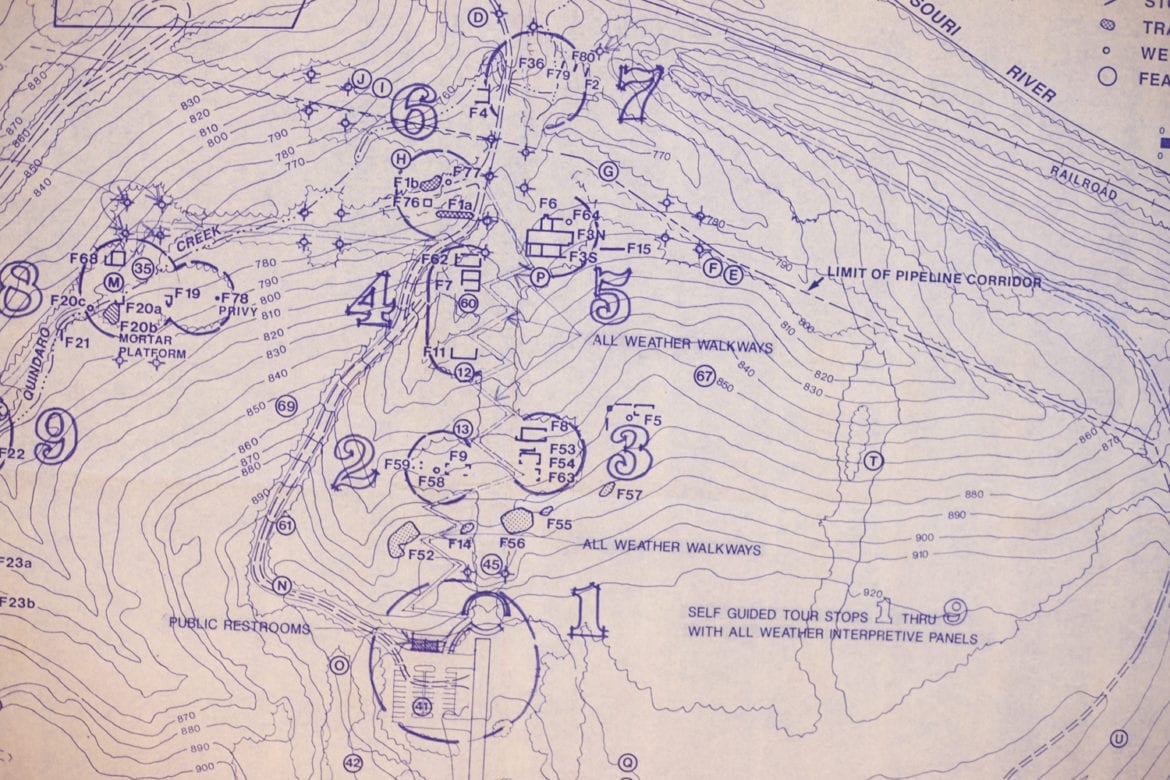 SOURI
RIVER
RAILROAD
STO
TRA
WE
FEA
0
0
D
F36
F80
F79
F2
F4
J
I
6
7
760
880
870
860
850
840
830
820
810
800
790
780
770
770
H
F77
F1b
F76
F1a
G
780
790
F6
F64
F3N
F3S
F15
P
5
F
E
LIMIT OF PIPELINE CORRIDOR
CREEK
F68
35
M
8
F20c
F20a
F19
F78
PRIVY
F20b
MORTAR
PLATFORM
F21
QUINDARO
780
790
800
810
820
830
840
850
860
870
880
890
F62
F7
60
4
F11
12
ALL WEATHER WALKWAYS
800
810
820
830
840
850
67
860
870
69
9
F22
13
2
F59
F9
F58
F8
F53
F54
F63
3
F5
F57
T
880
890
900
910
920
61
F52
F14
F56
F55
45
ALL WEATHER WALKWAYS
F23a
F23b
N
PUBLIC RESTROOMS
1
SELF GUIDED TOUR STOPS 1 THRU 9
WITH ALL WEATHER INTERPRETIVE PANELS
O
41
42
Q
U
870
880
890
900